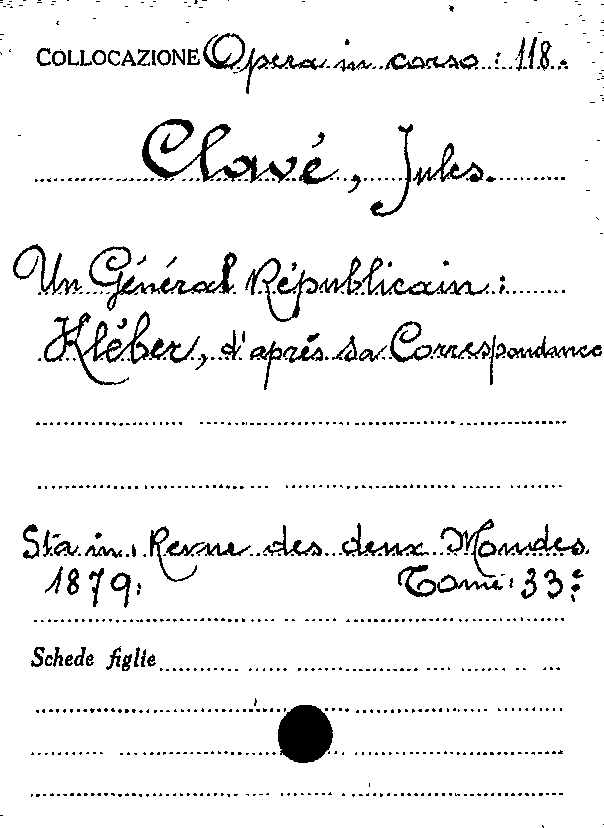 COLLOCAZIONE Opera in corso: 118.
Clavé, Jules.
Un Général Républicain:
Kléber, d'aprés sa Correspondance
Sta in: Revue des deux Mondes
1879: Tome: 33e:
Schede figlie